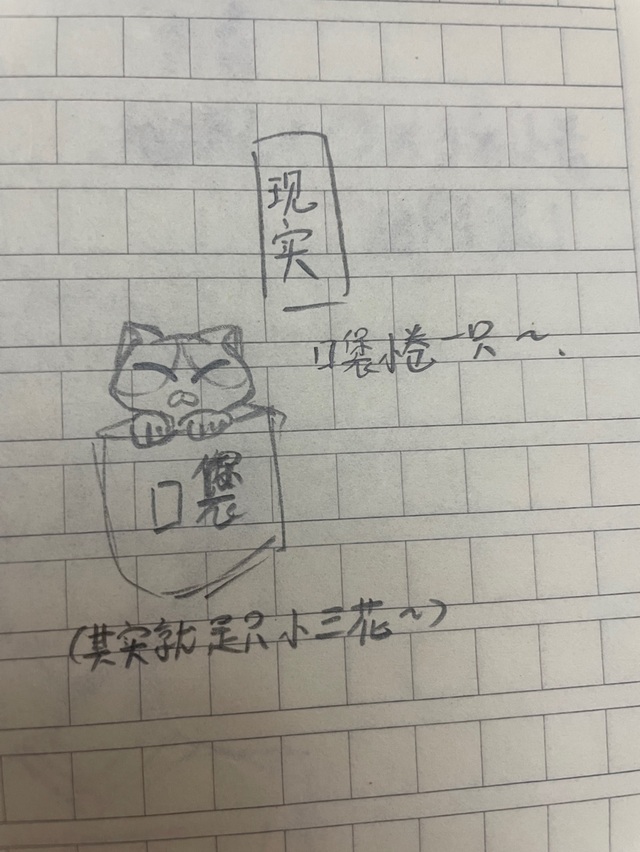 现实
口袋小卷一只~.
口袋
(其实就是只小三花~)